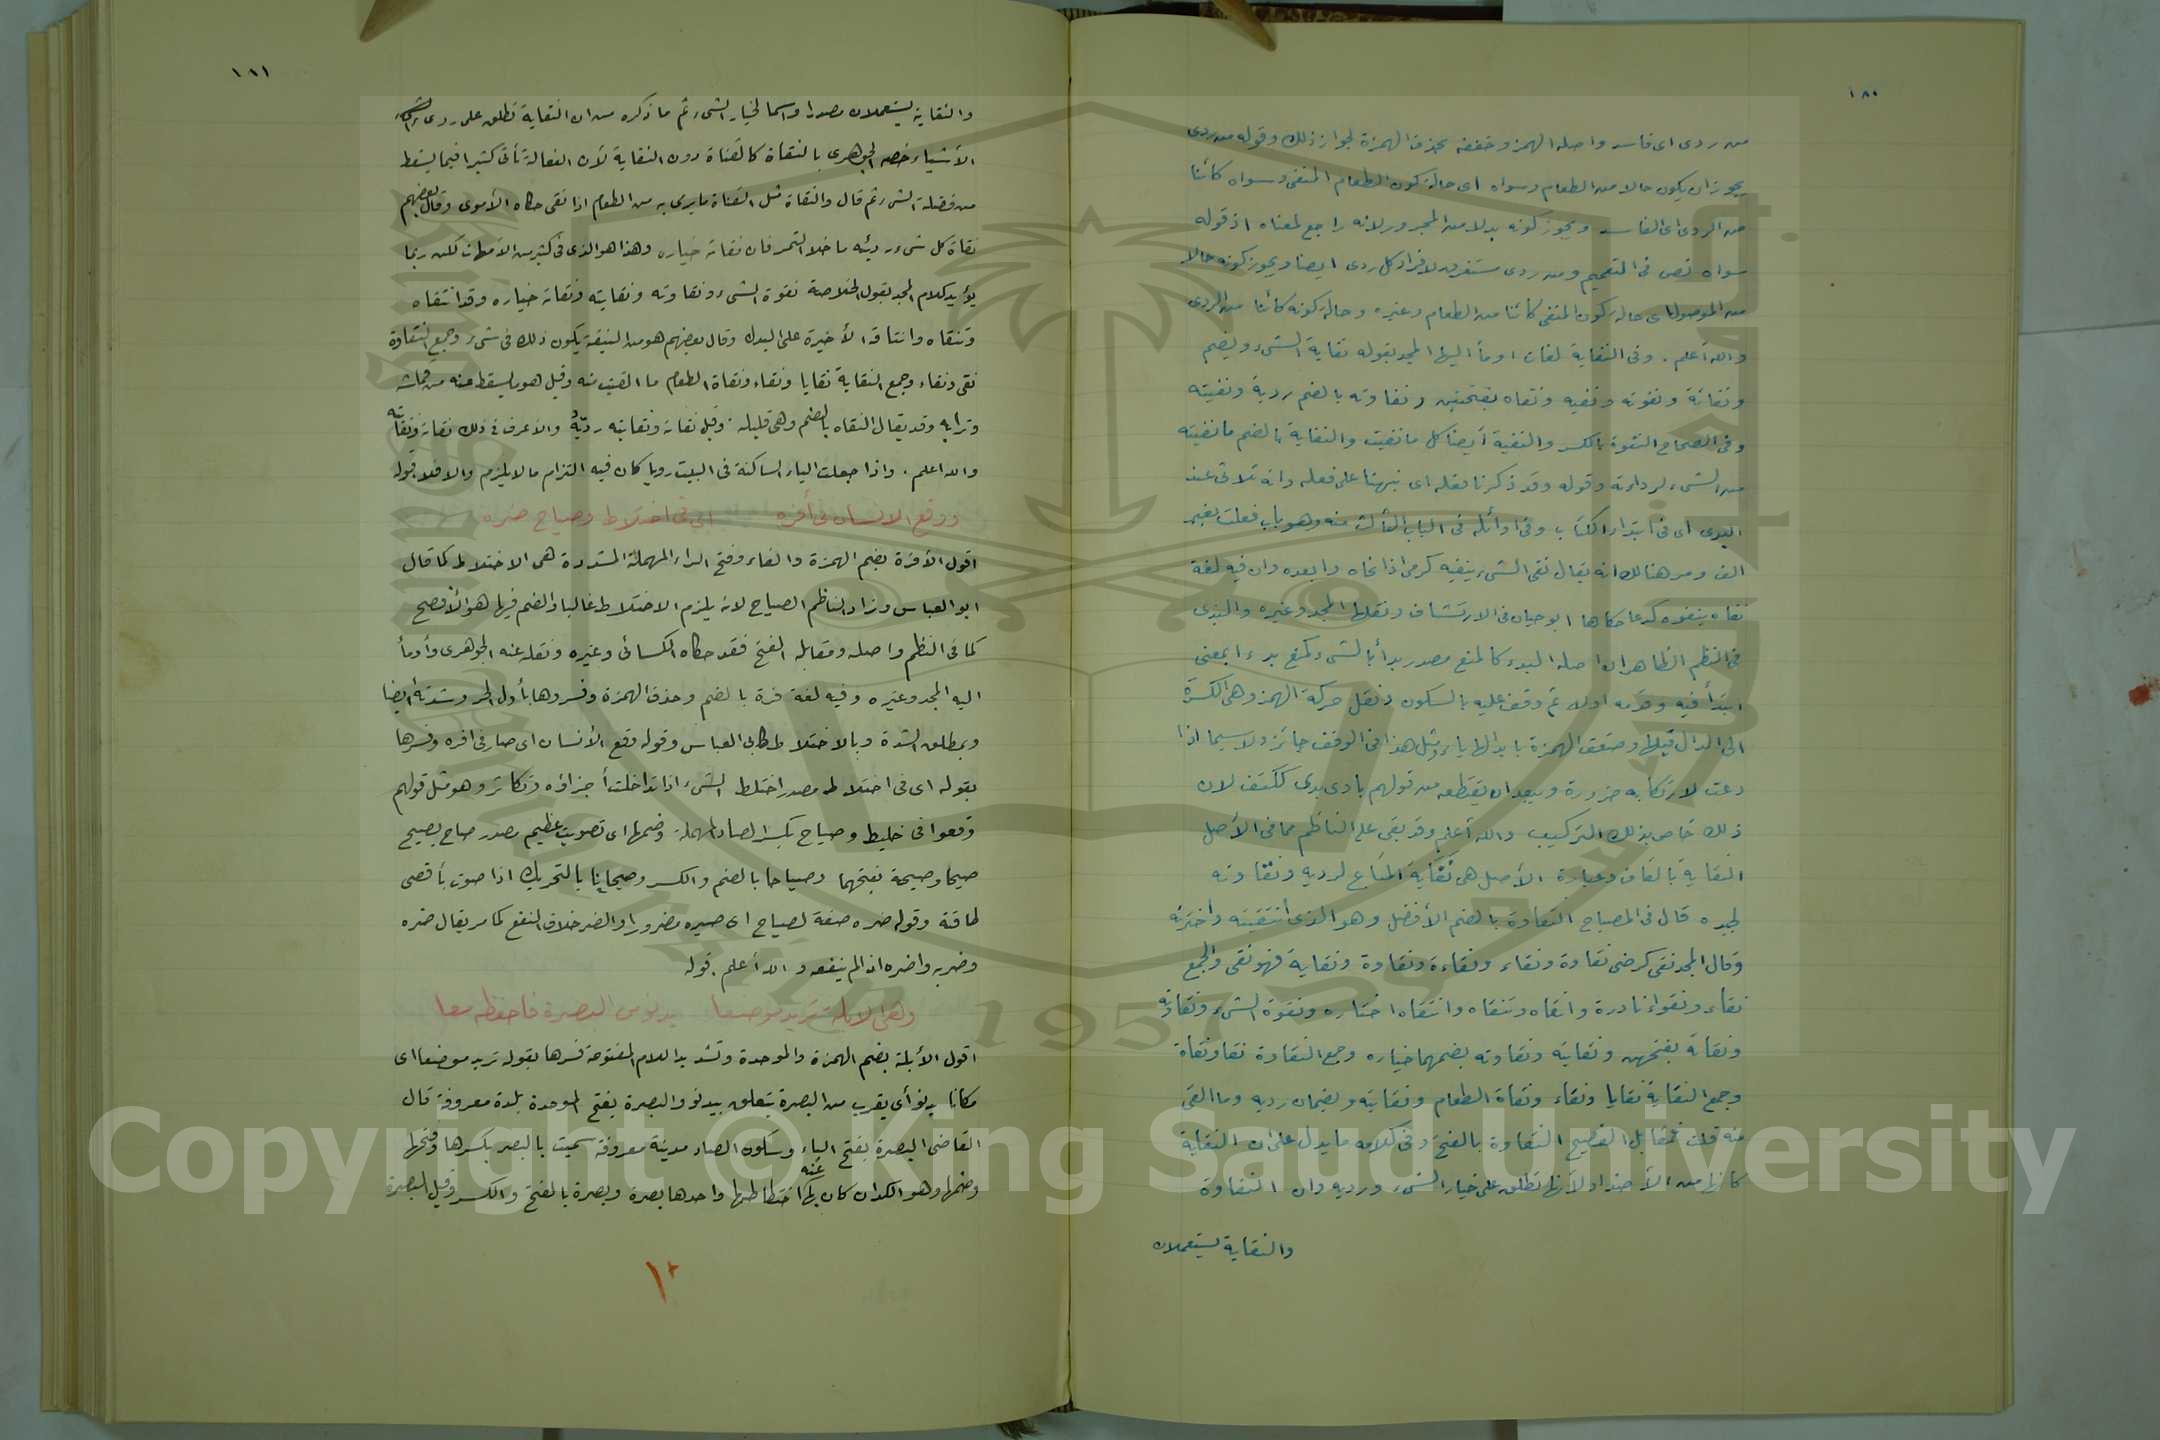 ١٨٠
من ردى اى فاسد واصله الهمز وخففه بحذف الهمزة لجواز ذلك وقوله من ردى
يجوز ان يكون حالا من الطعام وسواه اى حالة كون الطعام المنفى وسواه كائنا
من الردى اى الفاسد ويجوز كونه بدلا من المجرور لانه راجع لمعناه اذ قوله
سواه نص فى التعميم ومن ردى مستغرق لافراد كل ردى ايضا ويجوز كونه حالا
من الموصول اى حالة كون المنفى كائنا من الطعام وغيره وحالة كونه كائنا من الردى
والله أعلم . وفى النفاية لغات اومأ اليها المجد بقوله نفاية الشىء ويضم
ونفاته ونفوته ونفيه ونفاه بفتحهن ونفاوته بالضم رديه ونفيته
وفى الصحاح النفوة بالكسر والنفية أيضا كل ما نفيت والنفاية بالضم ما نفيته
من الشىء لرداءته وقوله وقد ذكرنا فعله اى نبهنا على فعله وانه ثلاثى عند
البدى اى فى ابتداء الكتاب وفى اوائله فى الباب الثالث منه وهو باب فعلت بغير
الف ومر هنالك انه يقال نفى الشىء ينفيه كرمى اذا نحاه وابعده وان فيه لغة
نفاه ينفوه كدعا حكاها ابو حيان فى الارتشاف ونقلها المجد وغيره والبدى
فى النظم الظاهر ان اصله البدء كالمنع مصدر بدأ بالشىء كمنع بدءا بمعنى
ابتدأ فيه وقدمه اولا ثم وقف عليه بالسكون ونقل حركة الهمز وهى الكسرة
الى الدال قبلها وخفف الهمزة بابدالها ياء ومثل هذا فى الوقف جائز ولا سيما اذا
دعت لارتكابه ضرورة ويبعد ان يقتطعه من قولهم بادى بدى ككتف لان
ذلك خاص بذلك التركيب والله أعلم وقد بقى على الناظم مما فى الأصل
النقاية بالقاف وعبارة الأصل هى نفاية المتاع لرديه ونقاوته
لجيده قال فى المصباح النقاوة بالضم الأفضل وهو الذى انتقيته واخترته
وقال المجد نقى كرضى نقاوة ونقاء ونقاءة ونقاوة ونقاية فهو نقى والجمع
نقاء ونقواء نادرة وانقاه وتنقاه وانتقاه اختاره ونقوة الشىء ونقاوته
ونقاته بفتحهن ونقايته ونقاوته بضمهما خياره وجمع النقاوة نقا ونقاة
وجمع النقاية نقايا ونقاء ونقاة الطعام ونقايته ويضمان رديه وما القى
منه قلت فمقابل الفصيح النقاوة بالفتح وفى كلامه ما يدل على ان النقاية
كانها من الأضداد لأنها تطلق على خيار الشىء ورديه وان النقاوة
والنقاية يستعملان
١٨١
والنقاية يستعملان مصدرا واسما لخيار الشىء ثم ما ذكره من ان النقاية تطلق على ردى
الأشياء خصه الجوهرى بالنقاة كالقناة دون النقاية لأن الفعالة تأتى كثيرا فيما يسقط
من فضلة الشىء ثم قال والنقاة مثل القناة ما يرمى به من الطعام اذا نقى حكاه الأموى وقال بعضهم
نقاة كل شىء رديئه ما خلا التمر فان نقاته خياره وهذا هو الذى فى كثير من الأمهات لكن ربما
يؤيد كلام المجد بقول الخلاصة نقوة الشىء ونقاوته ونقايته ونقاته خياره وقد انتقاه
وتنقاه وانتاقه الأخيرة على البدل وقال بعضهم هو من النيقة يكون ذلك فى شىء وجمع النقاوة
نقى ونقاء وجمع النقاية نقايا ونقاء ونقاة الطعام ما القيت منه وقيل هو ما يسقط منه من قماشه
وترابه وقد يقال النقاه بالضم وهى قليلة . وقيل نقاته ونقايته رديئه والاعرف فى ذلك نقاته ونقايته
والله اعلم . واذا جعلت الياء الساكنة فى البيت رويا كان فيه التزام ما لا يلزم والا فلا قوله
ووقع الانسان فى أفره اى فى اختلاط وصياح ضره
اقول الأفرة بضم الهمزة والفاء وفتح الراء المهملة المشددة هى الاختلاط كما قال
ابو العباس وزاد الناظم الصياح لانه يلزم الاختلاط غالبا والضم فيها هو الأفصح
كما فى النظم واصله ومقابله الفتح فقد حكاه الكسائى وغيره ونقله عنه الجوهرى وأومأ
اليه المجد وغيره وفيه لغة فرة بالضم وحذف الهمزة وفسروها بأول الحر وشدته ايضا
وبمطلق الشدة وبالاختلاط كابى العباس وقوله وقع الأنسان اى صار فى افره وفسرها
بقوله اى فى اختلاط مصدر اختلط الشىء اذا تداخلت أجزاؤه وتكاثر وهو مثل قولهم
وقعوا فى خليط وصياح بكسر الصاد المهملة وضمها اى تصويت عظيم مصدر صاح يصيح
صيحا وصيحة بفتحهما وصياحا بالضم والكسر وصيحانا بالتحريك اذا صوت بأقصى
طاقته وقوله ضره صفة لصياح اى صيره مضرورا والضر خلاف النفع كما مر يقال ضره
وضر به واضره اذا لم ينفعه والله أعلم . قوله
وهى الابلة تريد موضعا يدنو من البصرة فاحفظه معا
اقول الأبلة بضم الهمزة والموحدة وتشديد اللام المفتوحة فسرها بقوله تريد موضعا اى
مكانا يدنو أى يقرب من البصرة يتعلق بيدنو والبصرة بفتح الموحدة بلدة معروفة قال
القاضى البصرة بفتح الباء وسكون الصاد مدينة معروفة سميت بالبصر بكسرها وفتحها
وضمها وهو الكذان كان بها عند اختطاطها واحدها بصرة وبصرة بالفتح والكسر وقيل البصرة
١٠
1957
Copyright © King Saud University